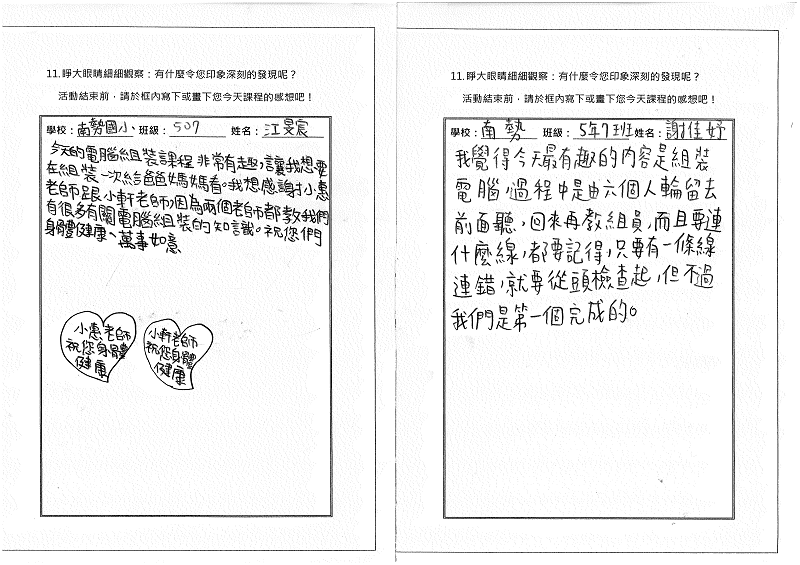 11.睜大眼睛細細觀察：有什麼令您印象深刻的發現呢？
活動結束前，請於框內寫下或畫下您今天課程的感想吧！
學校：南勢國小、班級：507 姓名：江旻宸
今天的電腦組裝課程非常有趣，讓我想要
在組裝一次給爸爸媽媽看。我想感謝小惠
老師跟小軒老師，因為兩個老師都教我們
有很多有關電腦組裝的知識。祝您們
身體健康、萬事如意
小惠老師
祝您身體
健康
小軒老師
祝您身體
健康
11.睜大眼睛細細觀察：有什麼令您印象深刻的發現呢？
活動結束前，請於框內寫下或畫下您今天課程的感想吧！
學校：南勢 班級：5年7班姓名：謝佳妤
我覺得今天最有趣的內容是組裝
電腦，過程中是由六個人輪留去
前面聽，回來再教組員，而且要連
什麼線，都要記得，只要有一條線
連錯，就要從頭檢查起，但不過
我們是第一個完成的。